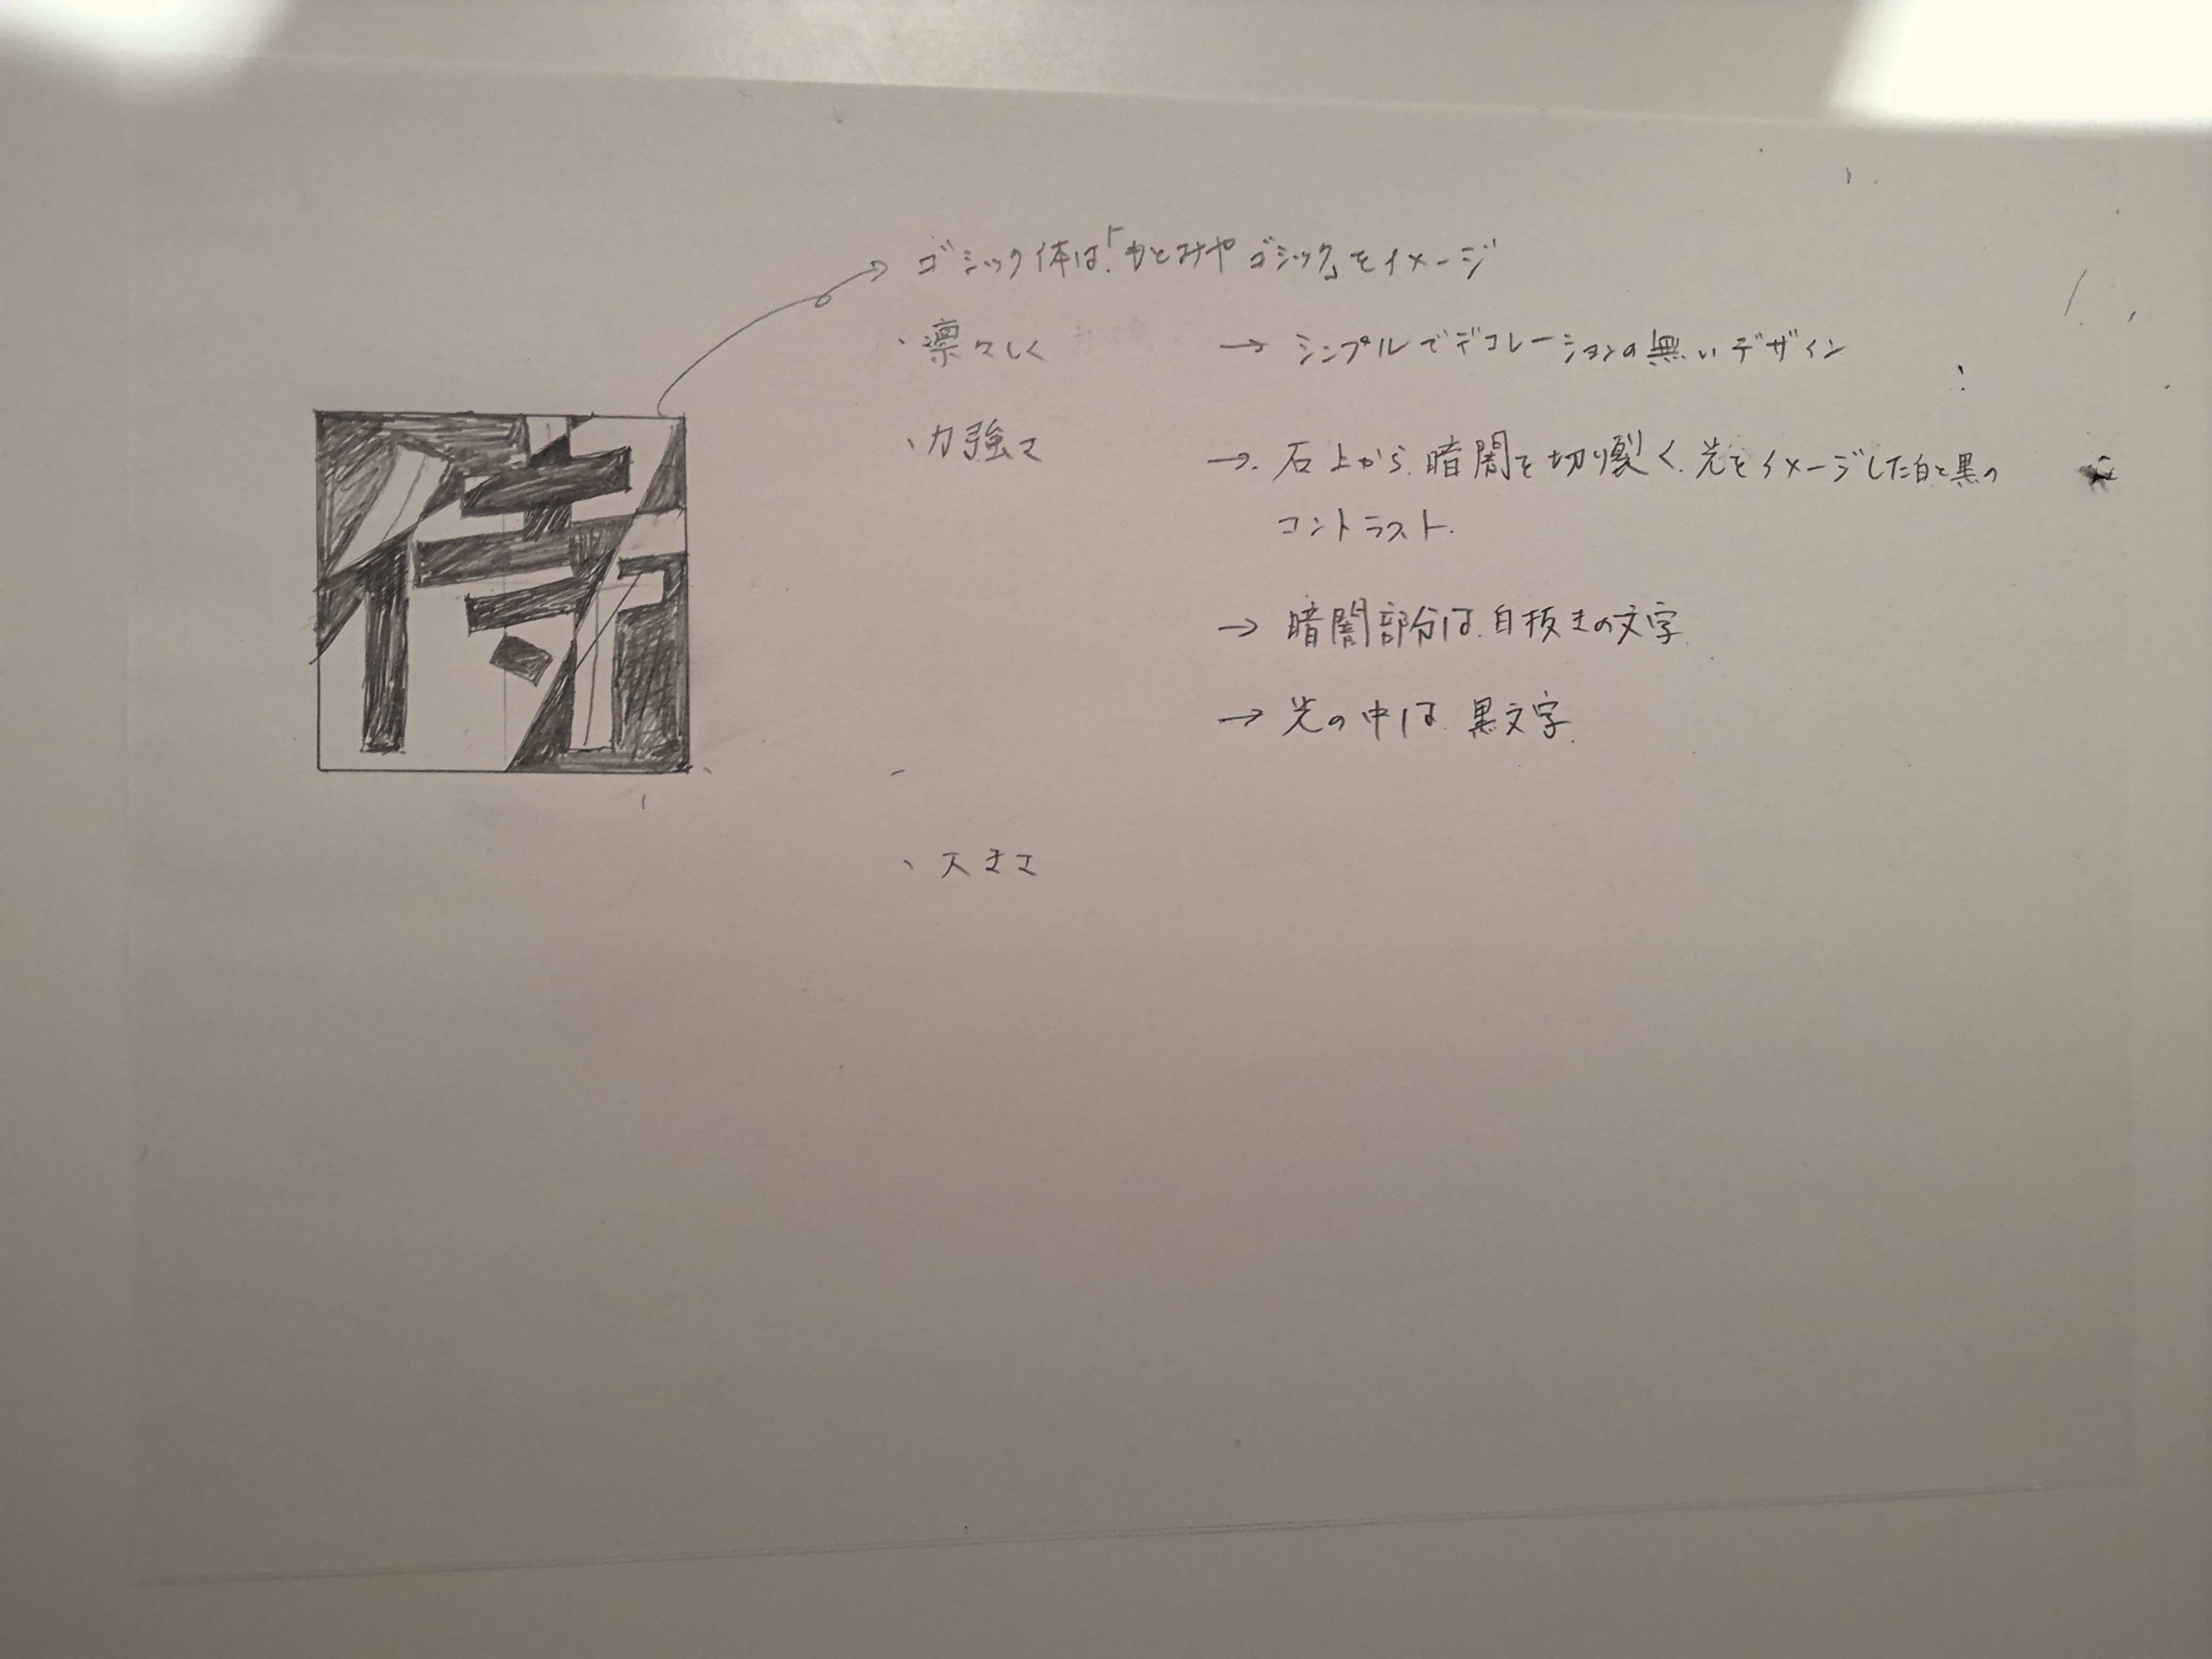 侍
ゴシック体は「もとみやゴシック」をイメージ
・凛々しく → シンプルでデコレーションの無いデザイン
・力強さ → 石上から暗闇を切り裂く光をイメージした白と黒の
コントラスト.
→ 暗闇部分は白抜きの文字
→ 光の中は黒文字.
・大きさ